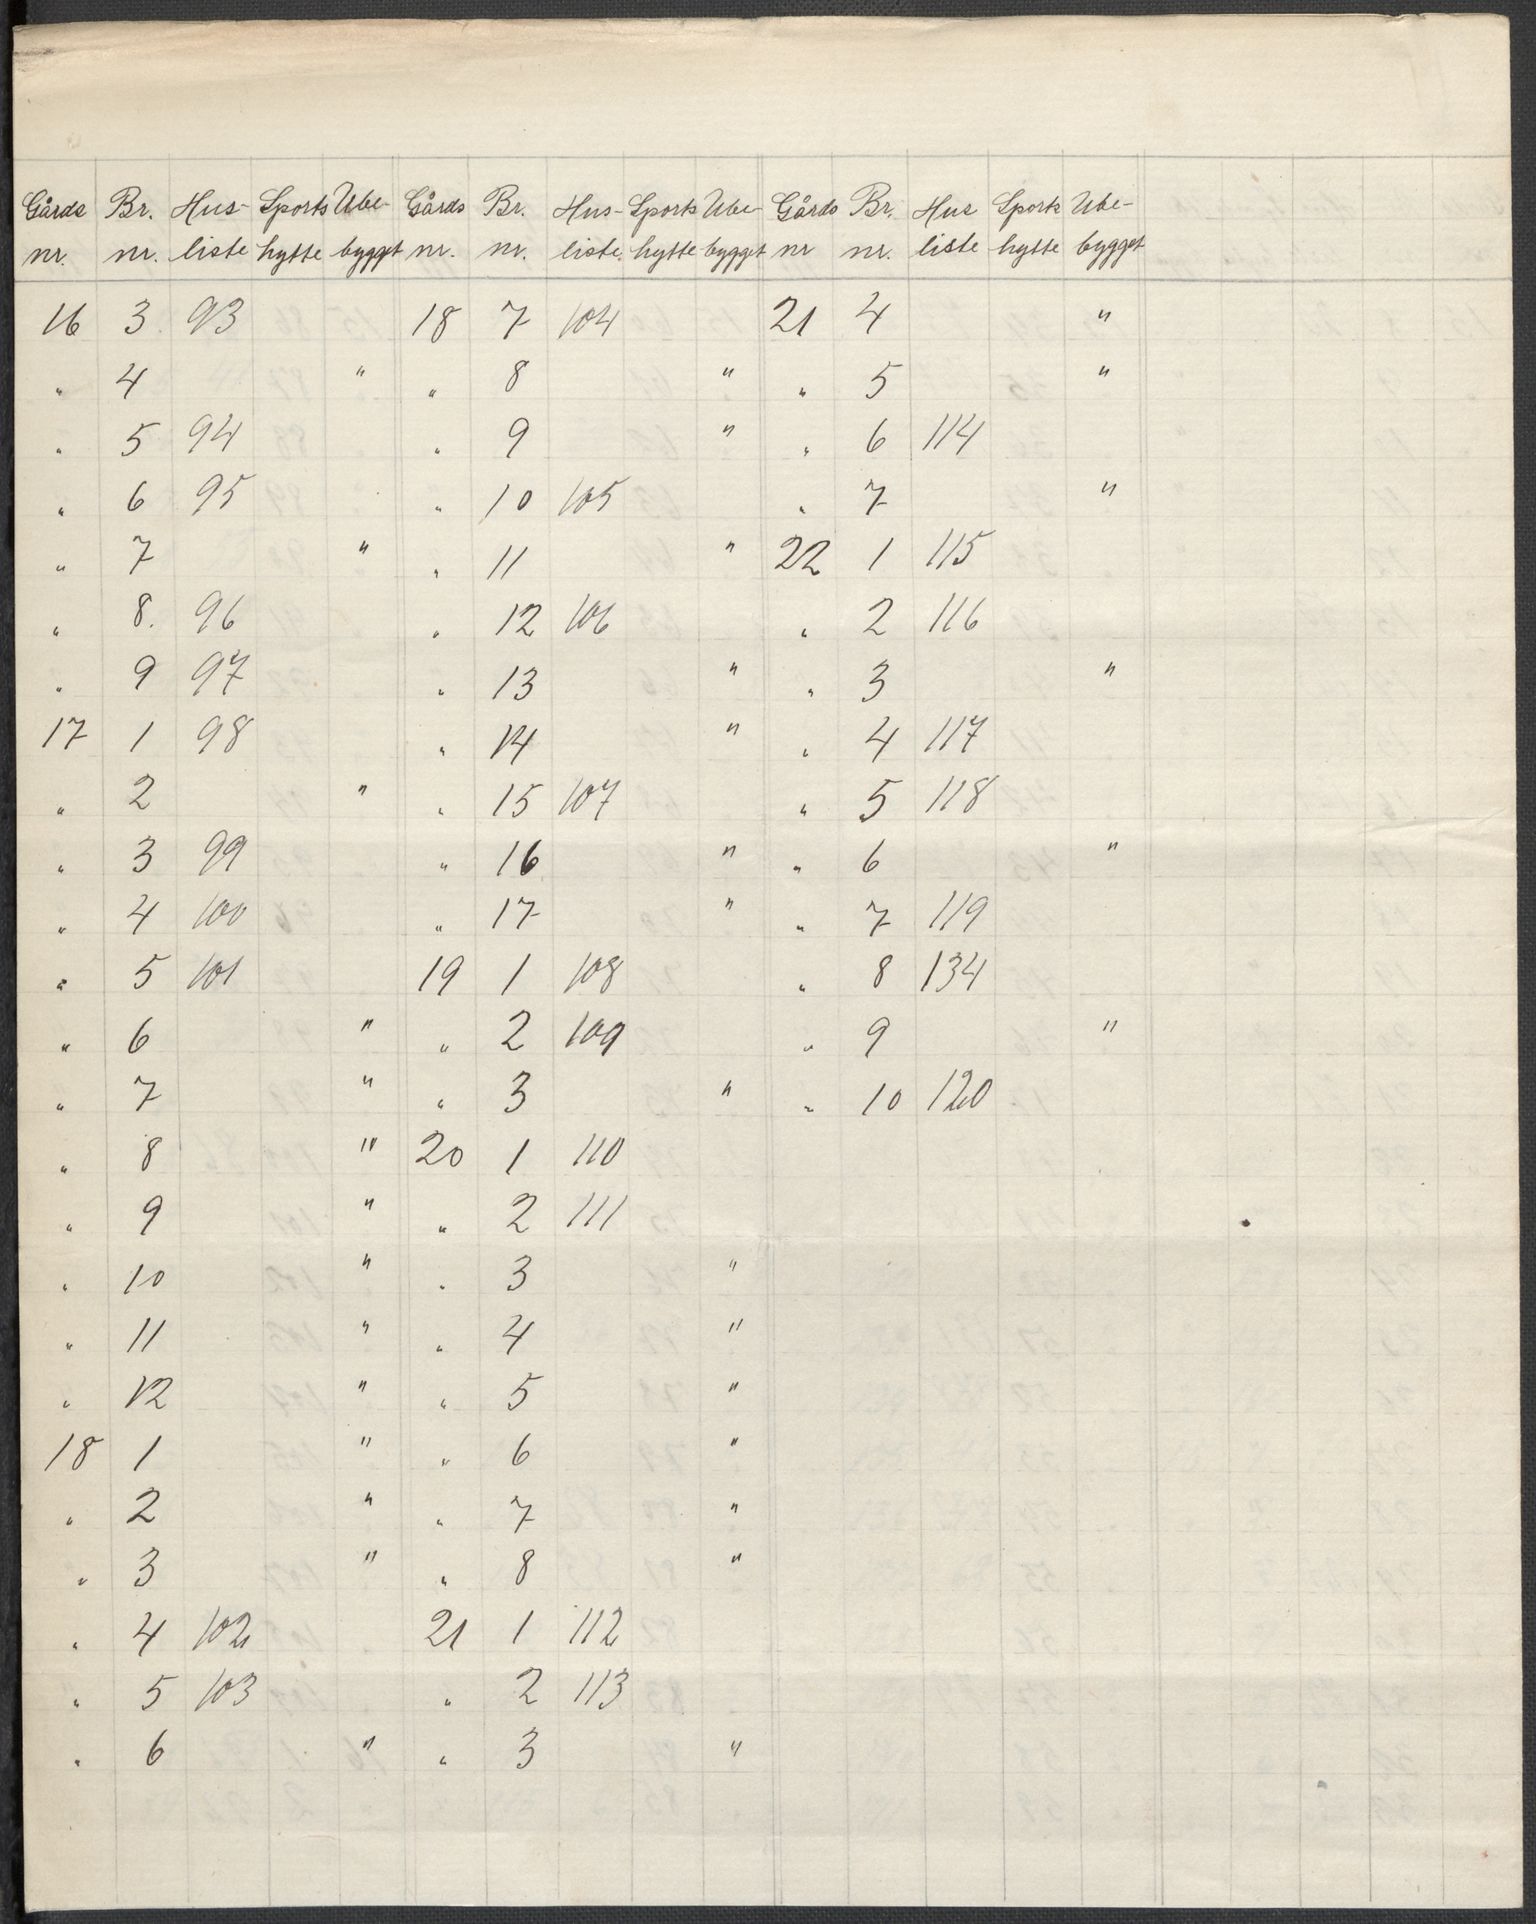 Gårds Br. Hus- Sports Ube- Gårds Br. Hus- Sports Ube- Gårds Br. Hus Sports Ube-
nr. nr. liste hytte bygget nr. nr. liste hytte bygget nr nr. liste hytte bygget
16 3. 93 18 7 104 21 4 "
" 4 " " 8 " " 5 "
" 5 94 " 9 " " 6 114
" 6 95 " 10 105 " 7 "
" 7 " " 11 " 22 1 115
" 8. 96 " 12 106 " 2 116
" 9 97 " 13 " " 3 "
17 1 98 " 14 " " 4 117
" 2 " " 15 107 " 5 118
" 3 99 " 16 " " 6 "
" 4 100 " 17 " " 7 119
" 5 101 19 1 108 " 8 134
" 6 " " 2 109 " 9 "
" 7 " " 3 " " 10 120
" 8 " 20 1 110
" 9 " " 2 111
" 10 " " 3 "
" 11 " " 4 "
" 12 " " 5 "
18 1 " " 6 "
" 2 " " 7 "
" 3 " " 8 "
" 4 102 21 1 112
" 5 103 " 2 113
" 6 " " 3 "